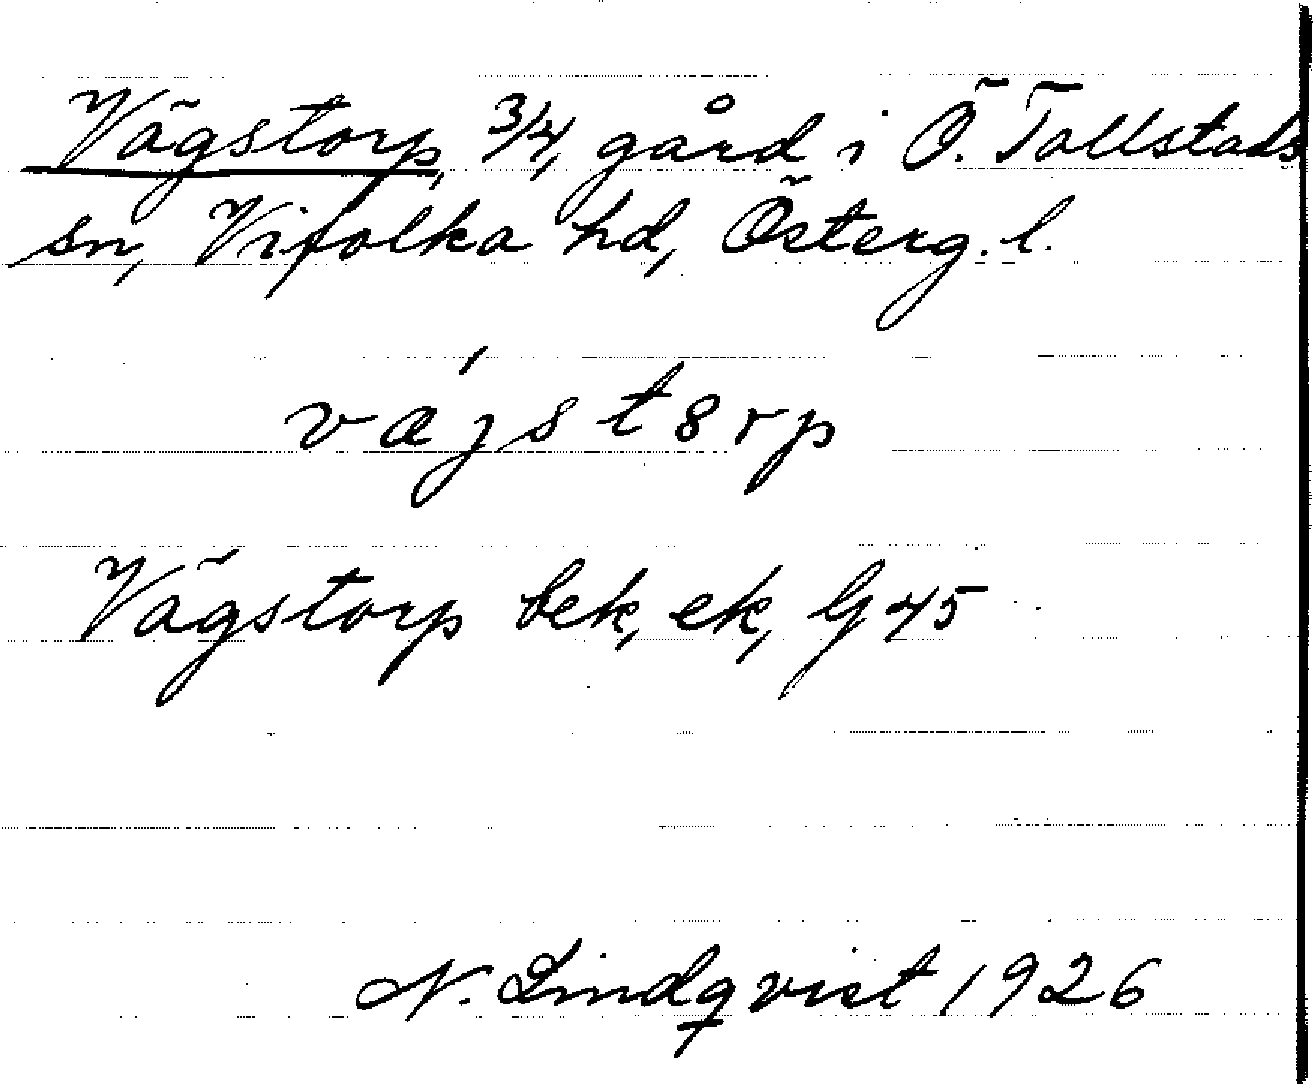 Vägstorp, 3/4, gård i Ö. Tollstads
sn, Vifolka hd, Österg. l.
vǽjstȣrp
Vägstorp bek, ek, G 45
N. Lindqvist 1926